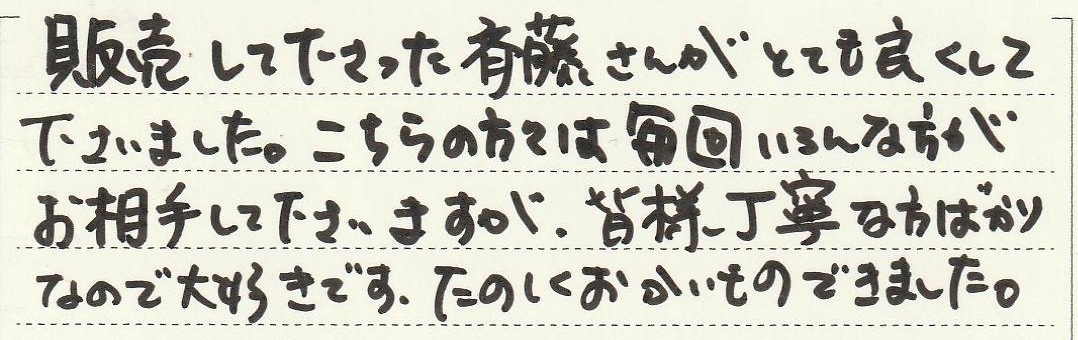 販売して下さった斉藤さんがとても良くして
下さいました。こちらの方では毎回いろんな方が
お相手して下さいますが、皆様丁寧な方ばかり
なので大好きです。たのしくおかいものできました。